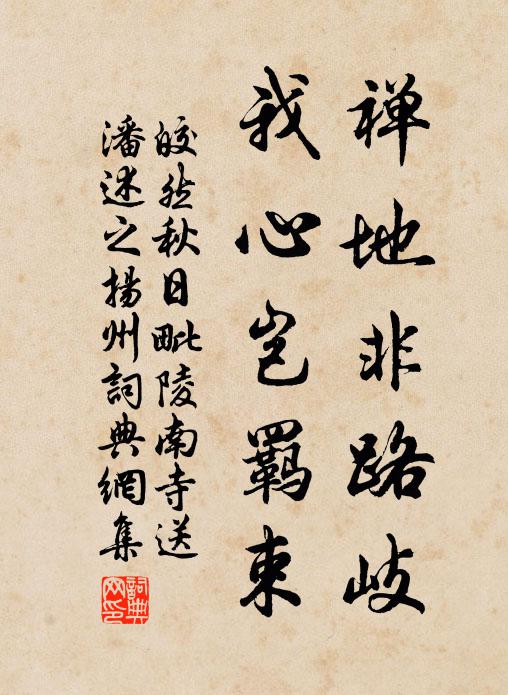 禅地非路岐
我心岂羁束
皎然秋日毗陵南寺送
潘述之揚州詞典網集